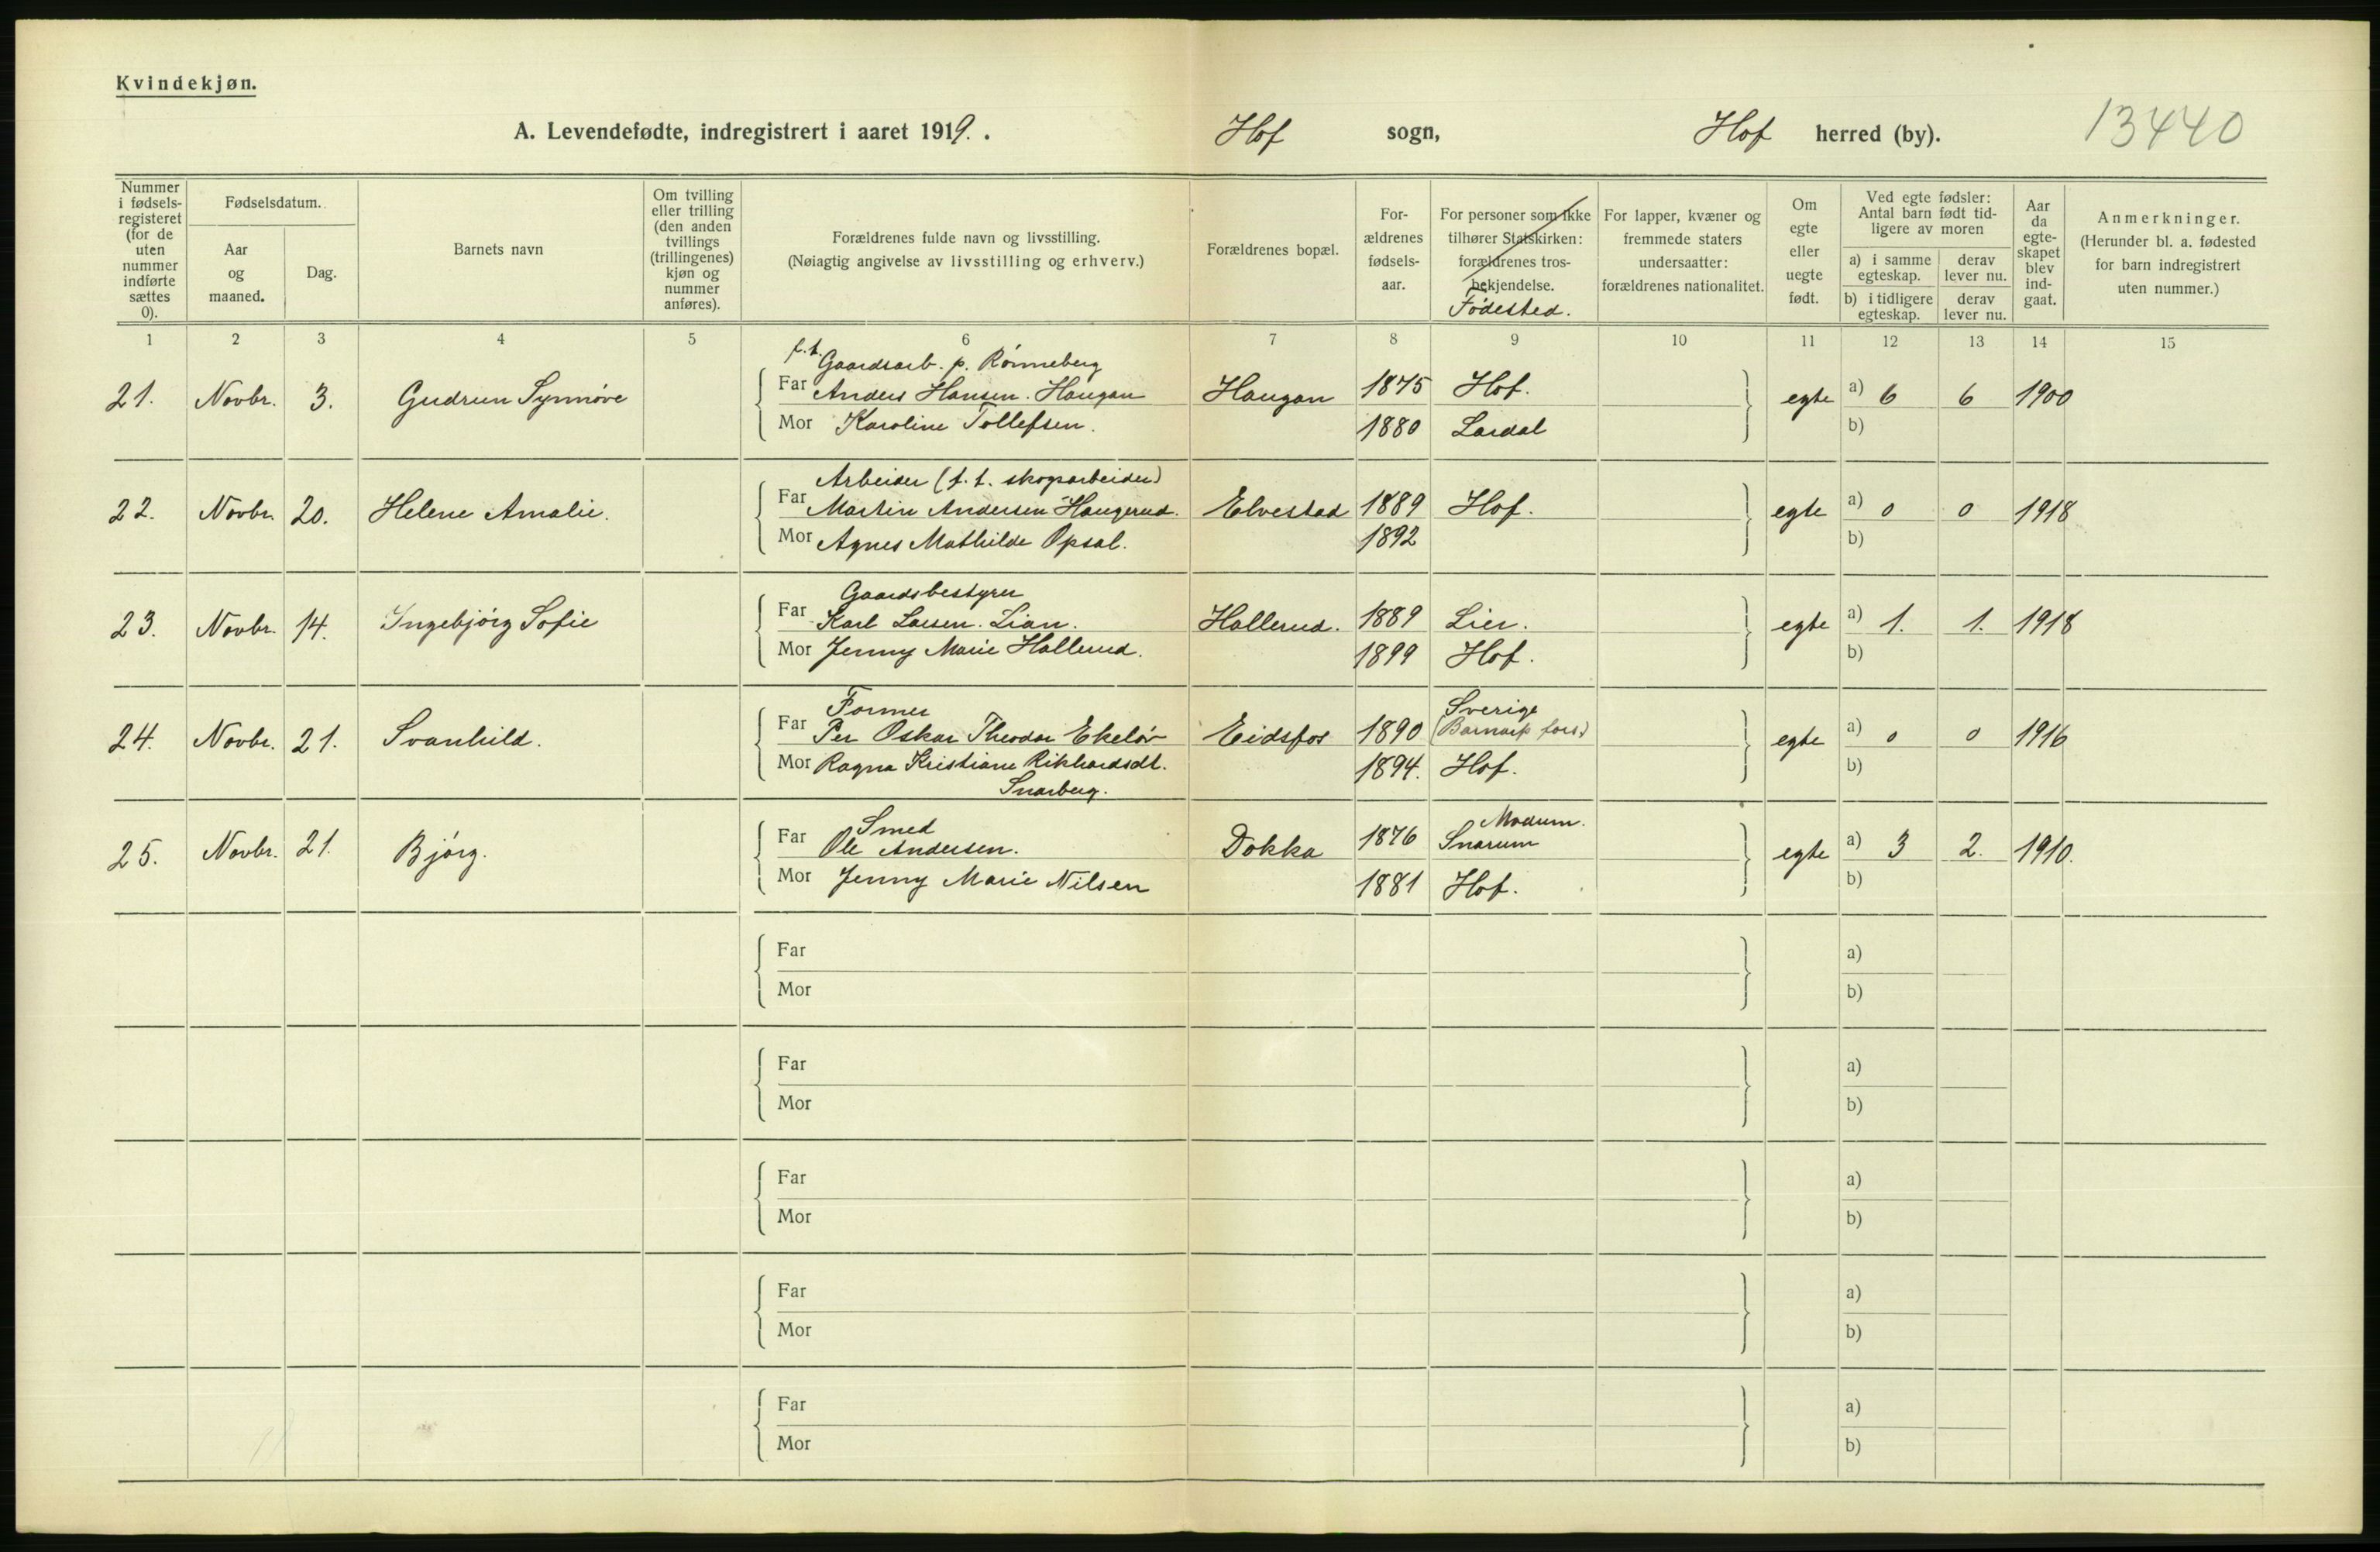 Kvindekjøn.
A. Levendefødte, indregistrert i aaret 1919. .
Hof sogn, Hof herred (by). 13440
Nummer i fødsels-registeret (for de uten nummer indførte sættes 0).
Fødselsdatum.
Aar og maaned.
Dag.
Barnets navn
Om tvilling eller trilling (den anden tvillings (trillingenes) kjøn og nummer anføres).
Forældrenes fulde navn og livsstilling.
(Nøiagtig angivelse av livsstilling og erhverv.)
Forældrenes bopæl.
For-ældrenes fødsels-aar.
For personer som ikke tilhører Statskirken: forældrenes tros-bekjendelse.
Fødested.
For lapper, kvæner og fremmede staters undersaatter: forældrenes nationalitet.
Om egte eller uegte født.
Ved egte fødsler: Antal barn født tid-ligere av moren
a) i samme egteskap. derav lever nu.
b) i tidligere egteskap. derav lever nu.
Aar da egte-skapet blev ind-gaat.
Anmerkninger.
(Herunder bl. a. fødested for barn indregistrert uten nummer.)
1 2 3 4 5 6 7 8 9 10 11 12 13 14 15
f.t. Gaardsarb. p. Rønneberg
21. Novbr. 3. Gudrun Synnøve Far Anders Hansen. Haugan Haugan 1875 Hof. egte a) 6 6 1900
Mor Karoline Tollefsen. 1880 Lardal b)
Arbeider (f. t. skogsarbeider)
22. Novbr. 20. Helene Amalie. Far Martin Andersen Haugerud. Elvestad 1889 Hof. egte a) 0 0 1918
Mor Agnes Mathilde Opsal. 1892 b)
Gaardsbestyrer
23. Novbr. 14. Ingebjörg Sofie Far Karl Larsen. Lian. Hallerud. 1889 Lier. egte a) 1. 1. 1918
Mor Jenny Marie Hallerud. 1899 Hof. b)
Former Sverige
24. Novbr. 21. Svanhild. Far Per Oskar Theodor Ekelöv Eidsfos 1890 egte a) 0 0 1916
Mor Ragna Kristiane Rikhardsdt. 1894. Hof. b)
Snarberg.
Smed Modum.
25. Novbr. 21. Bjørg. Far Ole Andersen. Dokka 1876 Snarum egte a) 3 2. 1910.
Mor Jenny Marie Nilsen 1881 Hof. b)
Far a)
Mor b)
Far a)
Mor b)
Far a)
Mor b)
Far a)
Mor b)
Far a)
Mor b)